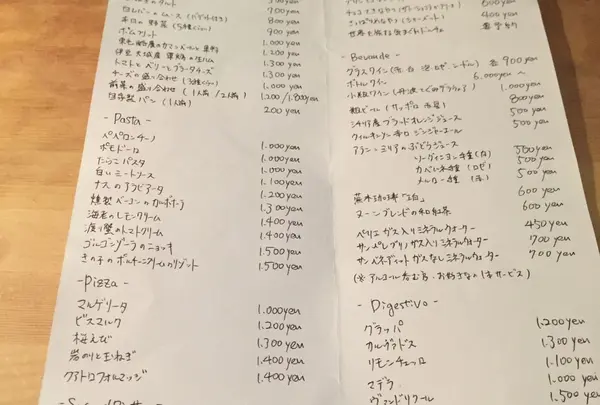 500 yen
白レバーのムース (バゲット付き) 700 yen
本日の野菜 (5種くらい) 800 yen
ポムフリット 800 yen
東毛酪農のカマンベール 1.000 yen
伊豆天城産 猪の生ハム 1.200 yen
トマトとベリーとブラータチーズ 1.300 yen
チーズの盛り合わせ (3種くらい) 1.000 yen
前菜の盛り合わせ (1人前/2人前) 1.200/1.800 yen
自家製パン (1人前) 200 yen
- Pasta -
ペペロンチーノ 1.000 yen
ポモドーロ 1.000 yen
たらこパスタ 1.000 yen
白いミートソース 1.000 yen
ナスのアラビアータ 1.200 yen
燻製ベーコンのカルボナーラ 1.300 yen
海老のレモンクリーム 1.400 yen
渡り蟹のトマトクリーム 1.400 yen
ゴルゴンゾーラのニョッキ 1.500 yen
きの子のポルチーニクリームのリゾット 1.500 yen
- Pizza -
マルゲリータ 1.000 yen
ビスマルク 1.200 yen
桜えび 1.300 yen
岩のりと玉ねぎ 1.400 yen
クアトロフォルマッジ 1.400 yen
600 yen
400 yen
- Bevande -
グラスワイン 各 900 yen
ボトルワイン 6.000 yen 〜
小瓶ワイン 1.000 yen
瓶ビール (サッポロ 赤星) 800 yen
シチリア産ブラッドオレンジジュース 500 yen
ウィルキンソン辛口ジンジャーエール 500 yen
アラン・ミリアのぶどうジュース
ソーヴィニヨン種 (白) 500 yen
カベルネ種 (ロゼ) 500 yen
メルロー種 (赤) 500 yen
600 yen
ヌーンブレンドの和紅茶 600 yen
ペリエ ガス入りミネラルウォーター 450 yen
サンペレグリノ ガス入りミネラルウォーター 700 yen
サンベネデット ガスなしミネラルウォーター 700 yen
(※ アルコール呑む方、お好きなの1本サービス)
- Digestivo -
グラッパ 1.200 yen
カルヴァドス 1.300 yen
リモンチェッロ 1.100 yen
マデラ 1.000 yen
ヴァンドリクール 1.500 yen